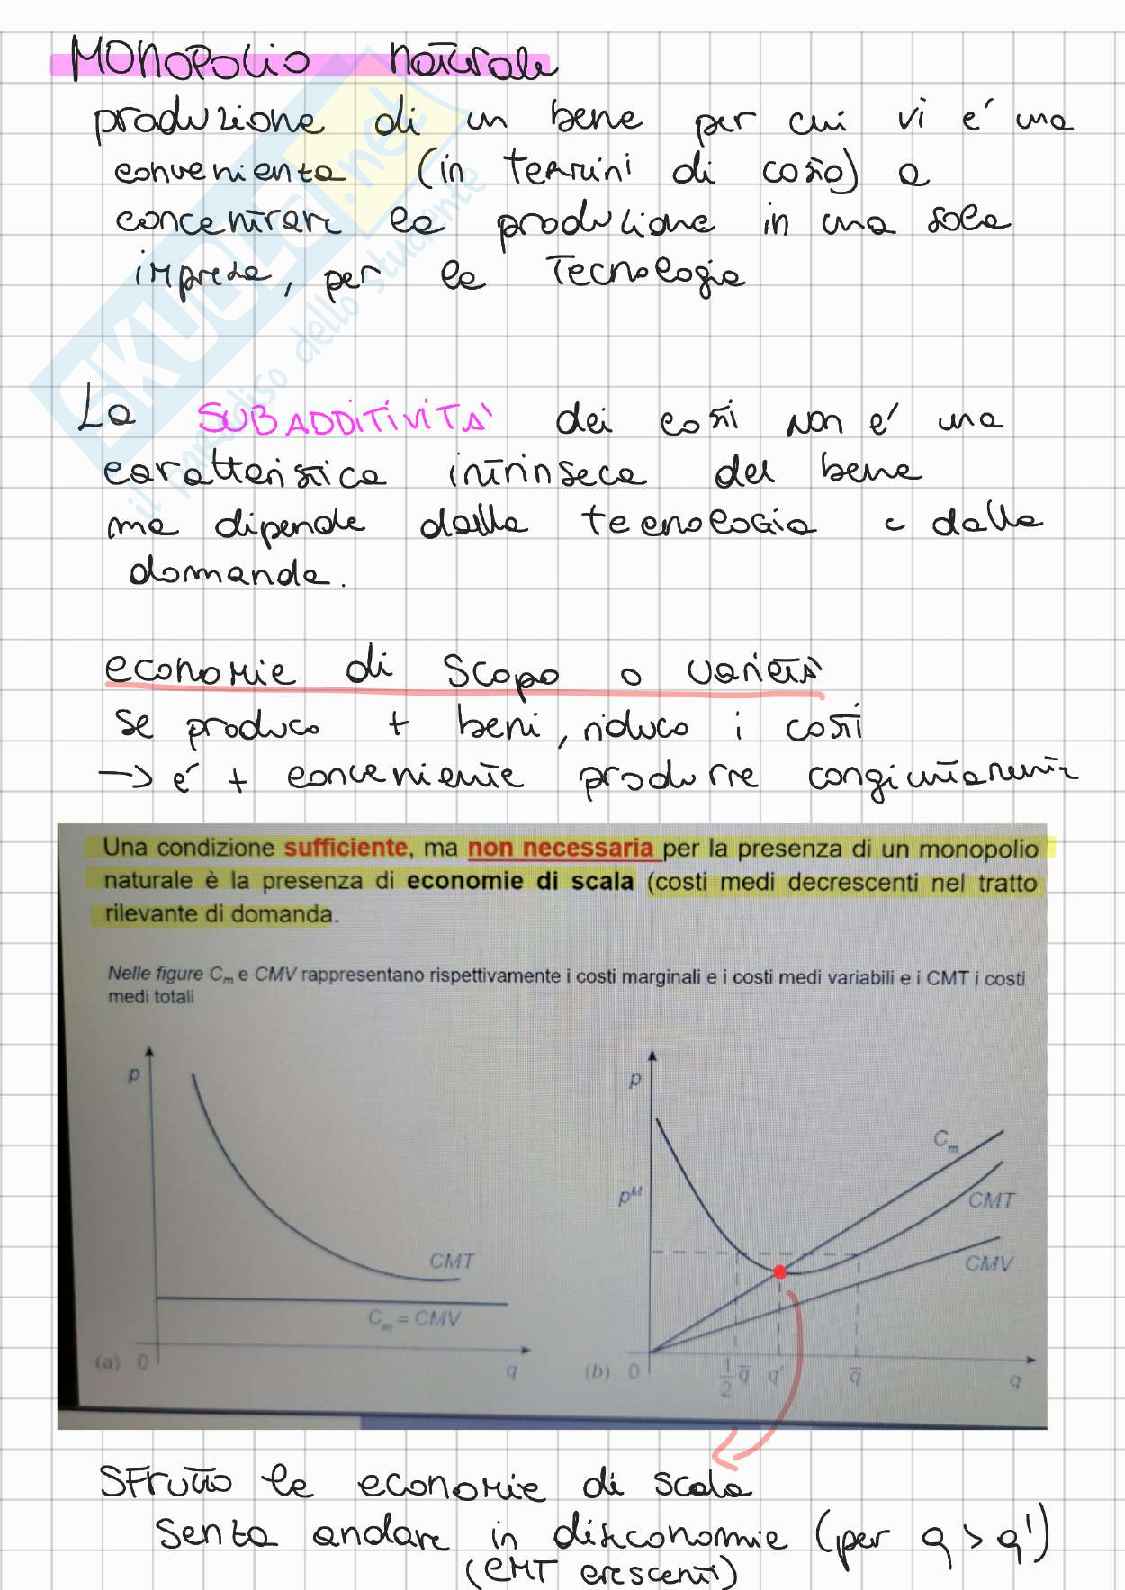 MONOPOLIO naturale
produzione di un bene per cui vi é una
convenienza (in termini di costo) a
concentrare la produzione in una sola
impresa, per la Tecnologia
La SUBADDITIVITA' dei costi non é una
caratteristica intrinseca del bene
ma dipende dalla tecnologia e dalla
domanda.
economie di Scopo o varietà
se produco + beni, riduco i costi
→ é + conveniente produrre congiuntamente
Una condizione sufficiente, ma non necessaria per la presenza di un monopolio
naturale è la presenza di economie di scala (costi medi decrescenti nel tratto
rilevante di domanda.
Nelle figure Cm e CMV rappresentano rispettivamente i costi marginali e i costi medi variabili e i CMT i costi
medi totali
p
CMT
Cm = CMV
(a) 0
q
p
pM
Cm
CMT
CMV
(b) 0
1/2 q̄ q' q̄
q
SFrutto le economie di scala
senza andare in diseconomie (per q > q')
(CMT crescenti)
SKUOLA.net
il paradiso dello studente